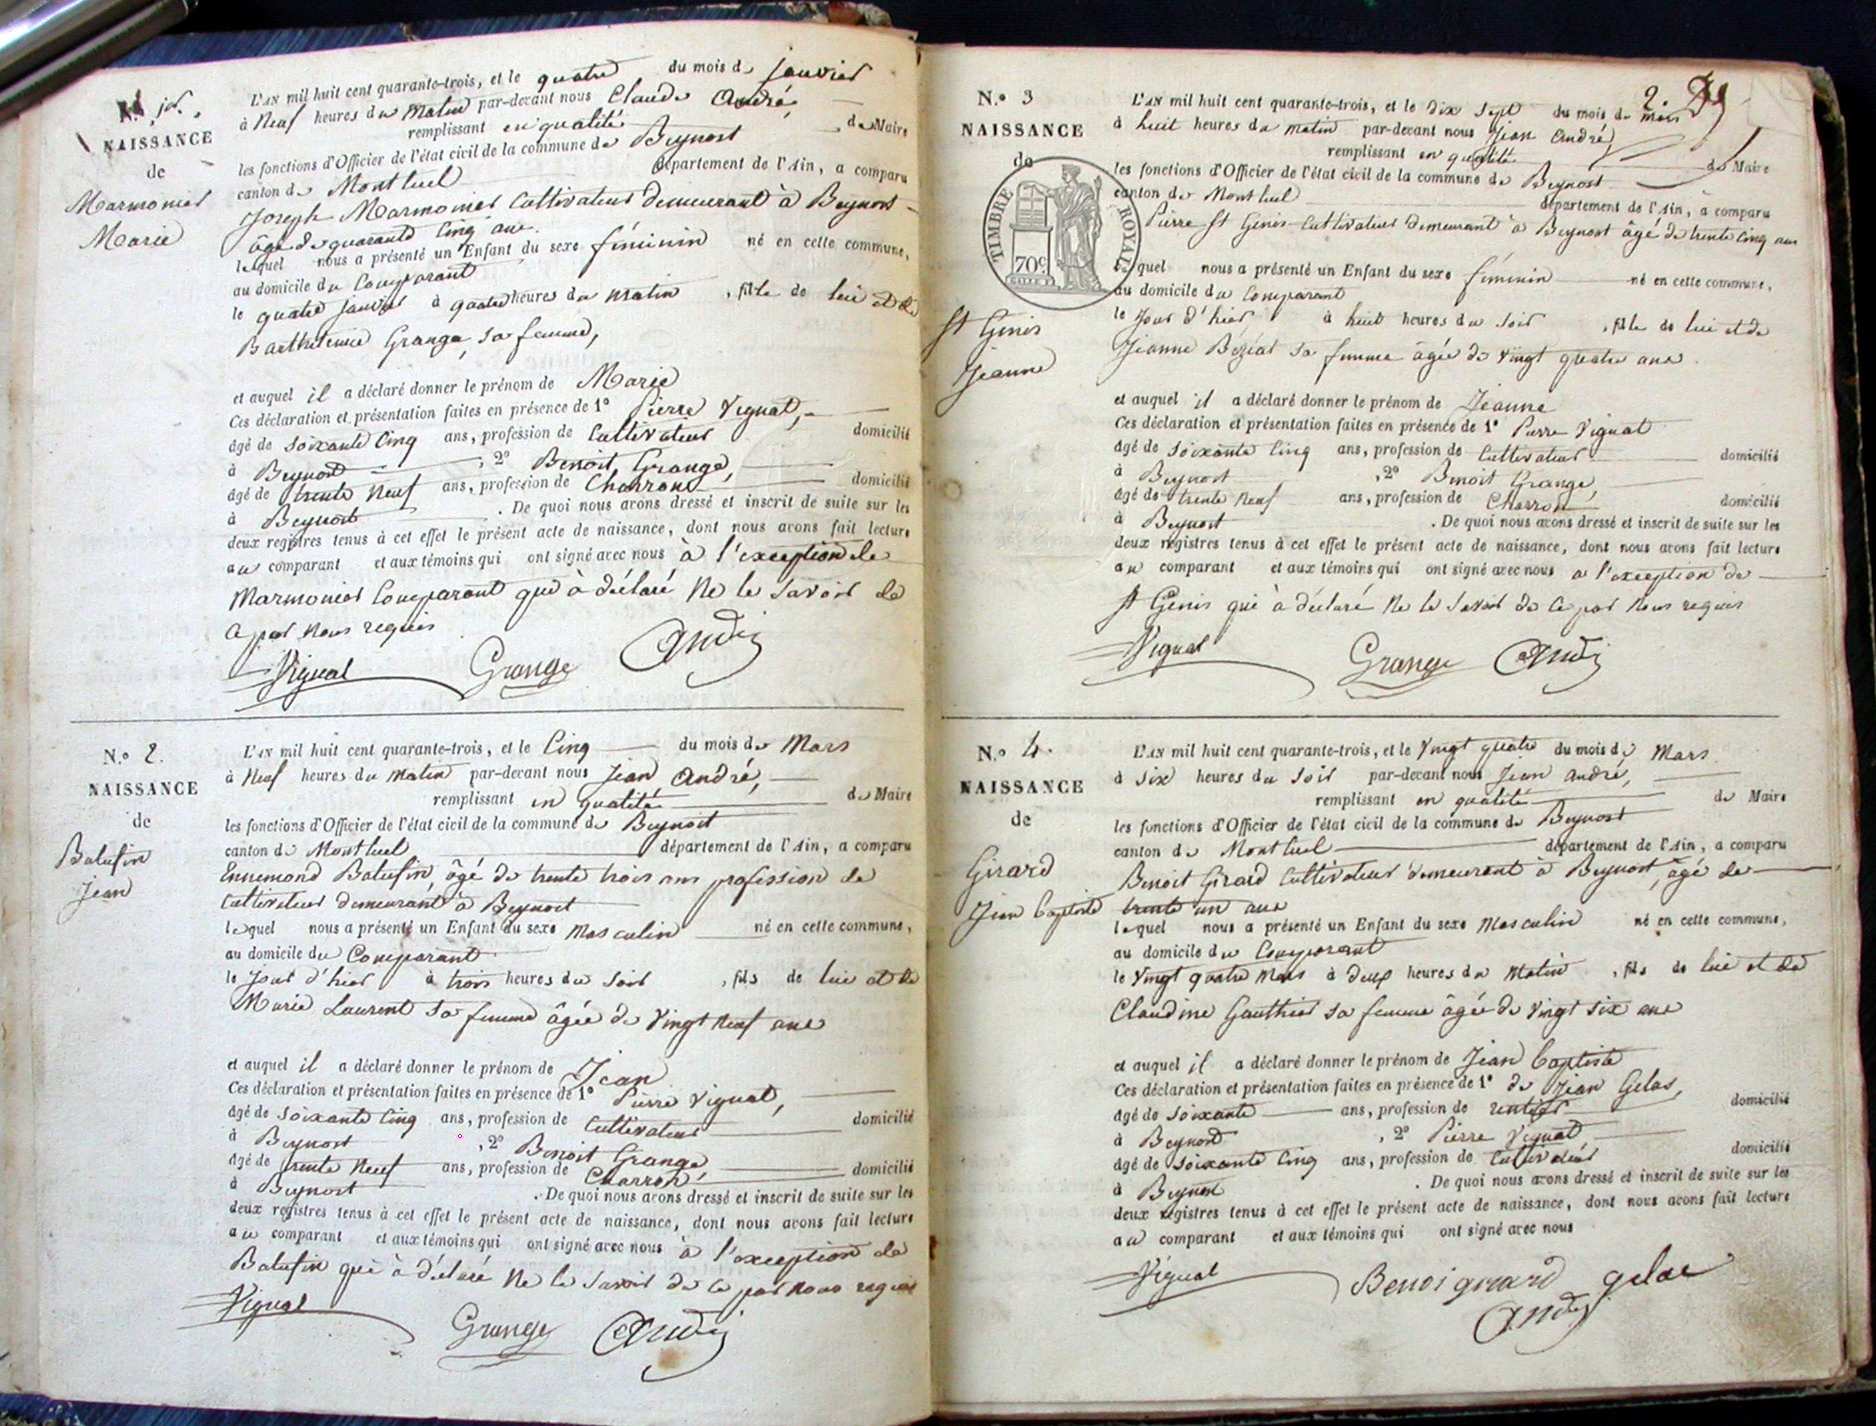 N.° 1er.
NAISSANCE
de
Marmonier
Marie
L'AN mil huit cent quarante-trois, et le quatre du mois de janvier
à Neuf heures du Matin par-devant nous Claude André,
remplissant en qualité de Maire
les fonctions d'Officier de l'état civil de la commune de Beynost
canton de Montluel département de l'Ain, a comparu
Joseph Marmonier Cultivateur demeurant à Beynost
âgé de quarante Cinq ans.
lequel nous a présenté un Enfant du sexe féminin né en cette commune,
au domicile du Comparant
le quatre janvier à quatre heures du matin , fille de lui et de
Barthelemie Grange, sa femme,
et auquel il a déclaré donner le prénom de Marie
Ces déclaration et présentation faites en présence de 1° Pierre Vignat,
âgé de soixante Cinq ans, profession de Cultivateur domicilié
à Beynost , 2° Benoit Grange,
âgé de trente Neuf ans, profession de Charron domicilié
à Beynost . De quoi nous avons dressé et inscrit de suite sur les
deux registres tenus à cet effet le présent acte de naissance, dont nous avons fait lecture
au comparant et aux témoins qui ont signé avec nous à l'exception de
Marmonier Comparant qui à déclaré Ne le Savoir de
ce par Nous requis
Vignat Grange André
N.° 2.
NAISSANCE
de
Balufin
Jean
L'AN mil huit cent quarante-trois, et le Cinq du mois de Mars
à Neuf heures du matin par-devant nous Jean André,
remplissant en qualité de Maire
les fonctions d'Officier de l'état civil de la commune de Beynost
canton de Montluel département de l'Ain, a comparu
Ennemond Balufin, âgé de trente trois ans profession de
Cultivateur demeurant à Beynost
lequel nous a présenté un Enfant du sexe Masculin né en cette commune,
au domicile du Comparant
le Jour d'hier à trois heures du Soir , fils de lui et de
Marie Laurent sa femme âgée de Vingt Neuf ans
et auquel il a déclaré donner le prénom de Jean
Ces déclaration et présentation faites en présence de 1° Pierre Vignat,
âgé de soixante Cinq ans, profession de Cultivateur domicilié
à Beynost , 2° Benoit Grange
âgé de trente Neuf ans, profession de Charron domicilié
à Beynost . De quoi nous avons dressé et inscrit de suite sur les
deux registres tenus à cet effet le présent acte de naissance, dont nous avons fait lecture
au comparant et aux témoins qui ont signé avec nous à l'exception de
Balufin qui à déclaré Ne le Savoir de ce par nous requis
Vignat Grange André
2
N.° 3
NAISSANCE
de
TIMBRE ROYAL
70c
St Genis
Jeanne
L'AN mil huit cent quarante-trois, et le Dix Sept du mois de Mars
à huit heures du matin par-devant nous Jean André,
remplissant en qualité de Maire
les fonctions d'Officier de l'état civil de la commune de Beynost
canton de Montluel département de l'Ain, a comparu
Pierre St Genis Cultivateur demeurant à Beynost âgé de trente Cinq ans
lequel nous a présenté un Enfant du sexe féminin né en cette commune,
au domicile du Comparant
le Jour d'hier à huit heures du Soir , fille de lui et de
Jeanne Béziat sa femme âgée de Vingt quatre ans.
et auquel il a déclaré donner le prénom de Jeanne
Ces déclaration et présentation faites en présence de 1° Pierre Vignat
âgé de Soixante Cinq ans, profession de Cultivateur domicilié
à Beynost , 2° Benoit Grange,
âgé de trente Neuf ans, profession de Charron domicilié
à Beynost . De quoi nous avons dressé et inscrit de suite sur les
deux registres tenus à cet effet le présent acte de naissance, dont nous avons fait lecture
au comparant et aux témoins qui ont signé avec nous a l'exception de
St Genis qui à déclaré Ne le Savoir de Ce par Nous requis
Vignat Grange André
N.° 4.
NAISSANCE
de
Girard
Jean Baptiste
L'AN mil huit cent quarante-trois, et le Vingt quatre du mois de Mars
à Six heures du Soir par-devant nous Jean André,
remplissant en qualité de Maire
les fonctions d'Officier de l'état civil de la commune de Beynost
canton de Montluel département de l'Ain, a comparu
Benoit Girard Cultivateur demeurant à Beynost, âgé de
trente un ans
lequel nous a présenté un Enfant du sexe Masculin né en cette commune,
au domicile du Comparant
le Vingt quatre Mars à deux heures du Matin , fils de lui et de
Claudine Gauthier sa femme âgée de Vingt Six ans
et auquel il a déclaré donner le prénom de Jean Baptiste
Ces déclaration et présentation faites en présence de 1° de Jean Gelas,
âgé de Soixante ans, profession de rentier domicilié
à Beynost , 2° Pierre Vignat
âgé de Soixante Cinq ans, profession de Cultivateur domicilié
à Beynost . De quoi nous avons dressé et inscrit de suite sur les
deux registres tenus à cet effet le présent acte de naissance, dont nous avons fait lecture
au comparant et aux témoins qui ont signé avec nous
Vignat Benoi girard gelas
André